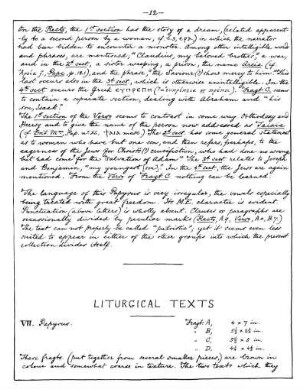 —12—
On the Recto, the 1st section has the story of a dream, (related apparently
by to a second person by a woman, cf. ), in which the narrator
had been bidden to encounter a minotor. Among other intelligible words
and phrases, are mentioned, "Claudius, my beloved brother," a war,
and, in the 2nd col., a ruler escaping a prison, the name
and the phrase, "the Saviour, (?) have mercy to him." This
last occurs also in the 3rd col., which is otherwise unintelligible. In the
4th col. occurs the Greek Fragt. C. seems
to contain a separate section, dealing with Abraham and "his
son, Isaak."
The 1st section of the Verso seems to contrast in some way Orthodoxy and
Heresy and to give the name of the person now addressed as Tatianus
The 2nd col. has some general statement
as to women who have but one son, and then refers, perhaps, to the
eagerness of the Jew for Christ's (?) conception, who had done us wrong,
but had come for the salvation of Adam. The 3rd col. relates to Joseph
and Benjamin, "my youngest (son)." In the 4th col. the Jews are again
mentioned. From the Verso of Fragt. C nothing can be learned.
The language of this Papyrus is very irregular, the vowels especially
being treated with great freedom. Its M.E. character is evident.
Punctuation (above letters) is wholly absent. Clauses or paragraphs are
occasionally divided by peculiar marks (Recto, A4, Verso, A2, B7).
The text can not properly be called "patristic", yet it seems even less
suited to appear in either of the other groups into which the present
collection divides itself.
LITURGICAL TEXTS
VII. Papyrus. Fragt. A, 4 x 7 in.
" B,
" C, 3½ x 5 in.
" D,
These fragts. (put together from several smaller pieces), are brown in
colour and somewhat coarse in texture. The two texts which they